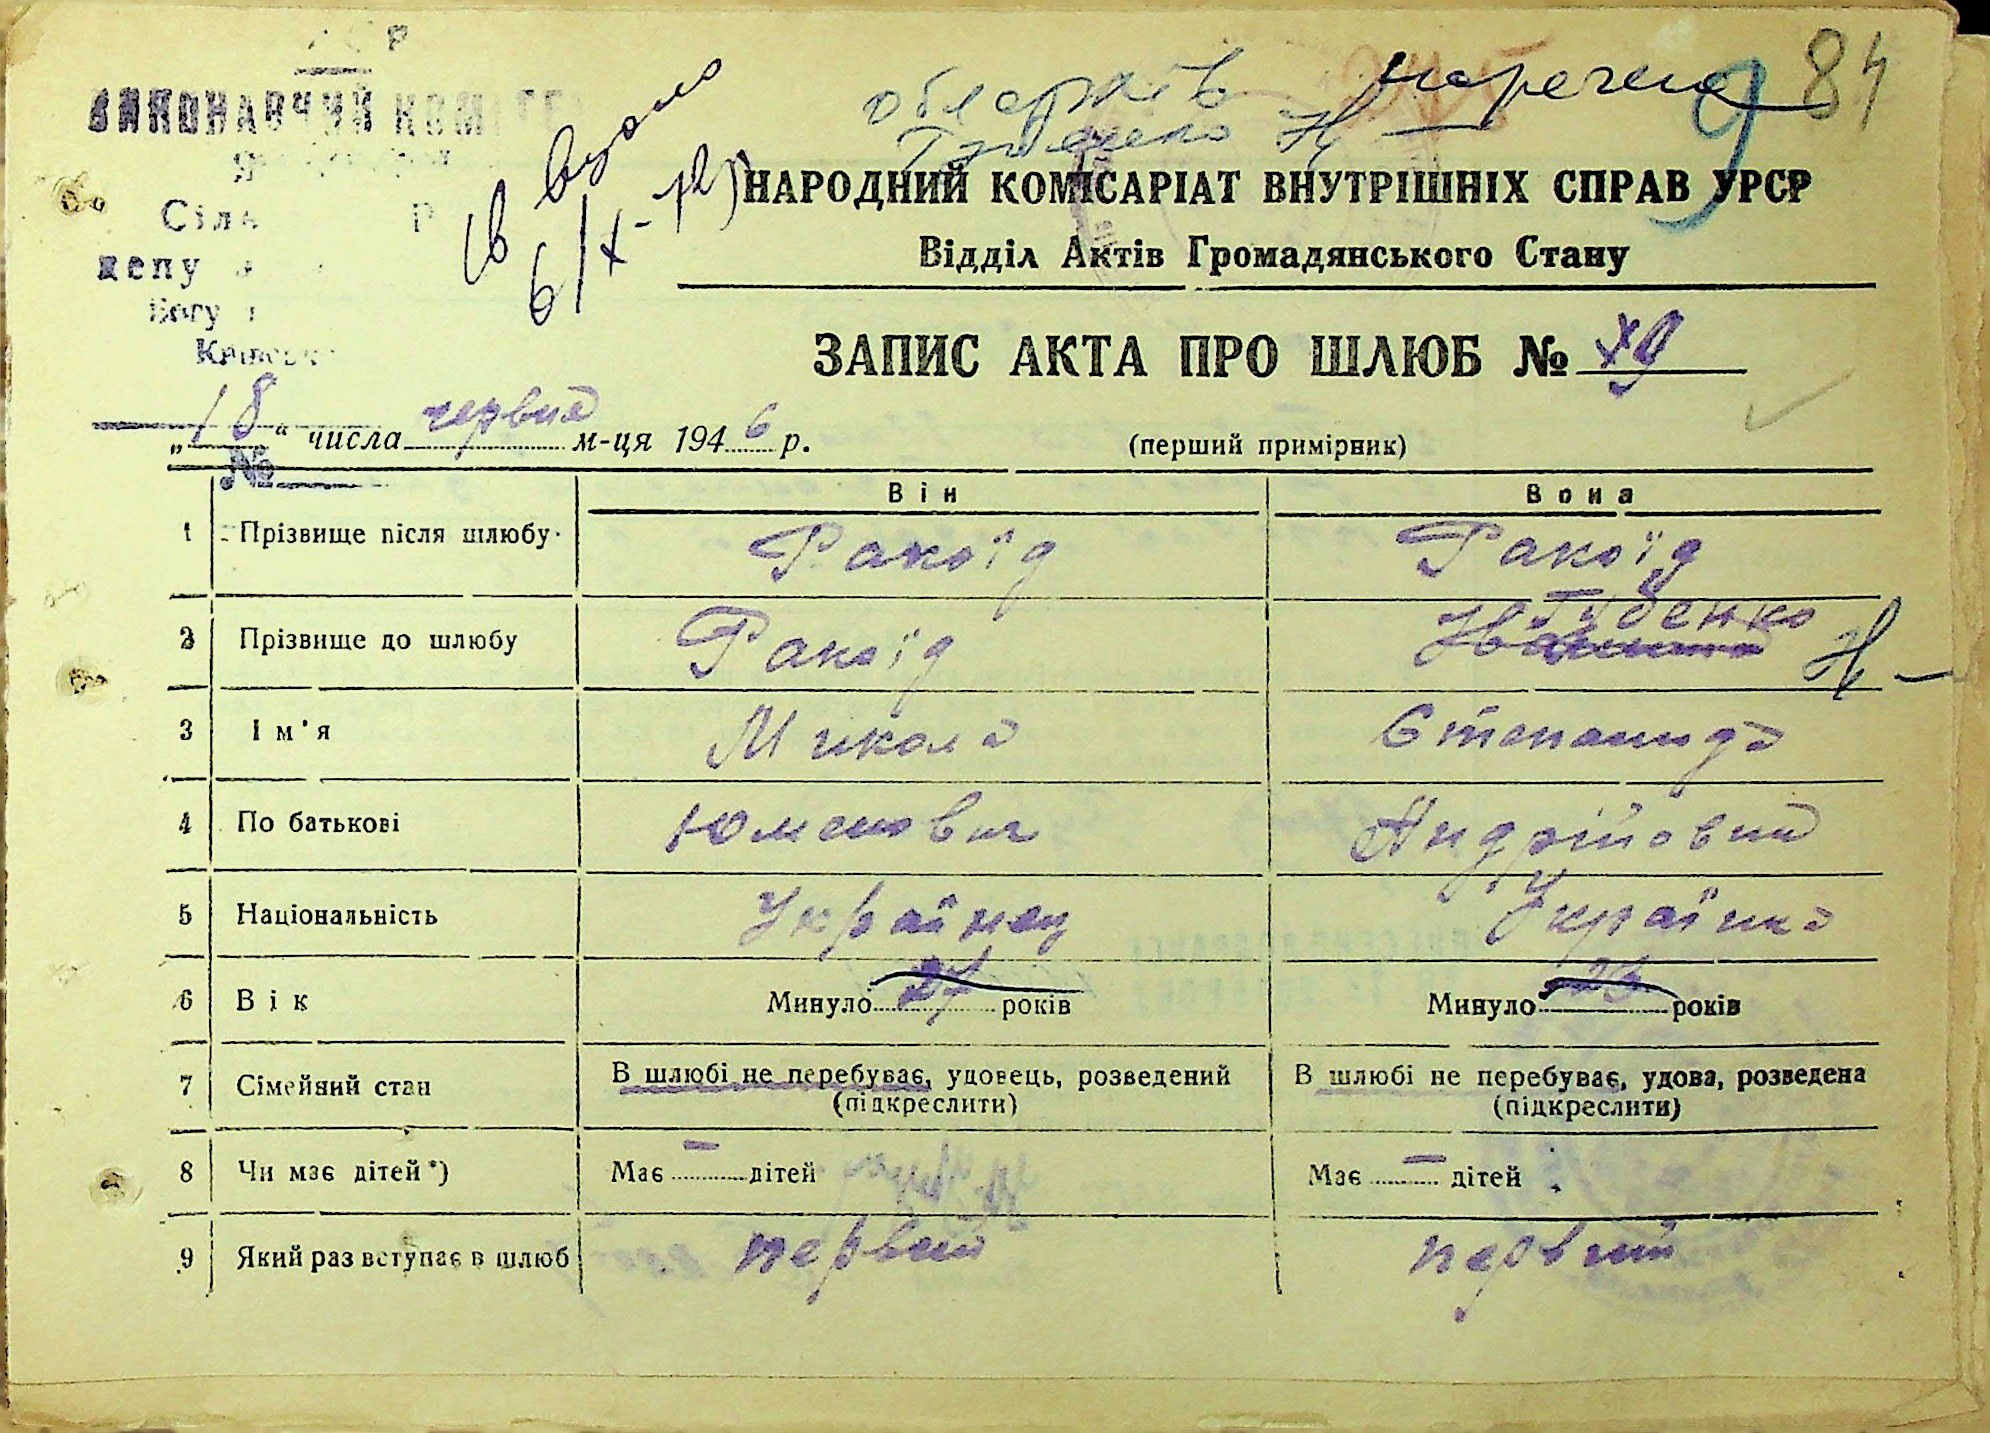 ВИКОНАВЧИЙ КОМІТЕТ
наречена 9 84
Губенко Н
св видано
6/X-
НАРОДНИЙ КОМІСАРІАТ ВНУТРІШНІХ СПРАВ УРСР
Відділ Актів Громадянського Стану
ЗАПИС АКТА ПРО ШЛЮБ №
„18“ числа червня м-ця 1946 р. (перший примірник)
№
Він Вона
1 Прізвище після шлюбу Ракоїд Ракоїд
2 Прізвище до шлюбу Ракоїд Губенко Н
3 Ім'я Микола Степанида
4 По батькові Юменович Андрійовна
5 Національність Українец Українка
6 Вік Минуло 27 років Минуло 23 років
7 Сімейний стан В шлюбі не перебуває, удовець, розведений (підкреслити) В шлюбі не перебуває, удова, розведена (підкреслити)
8 Чи має дітей*) Має — дітей Має — дітей
9 Який раз вступає в шлюб первий первий